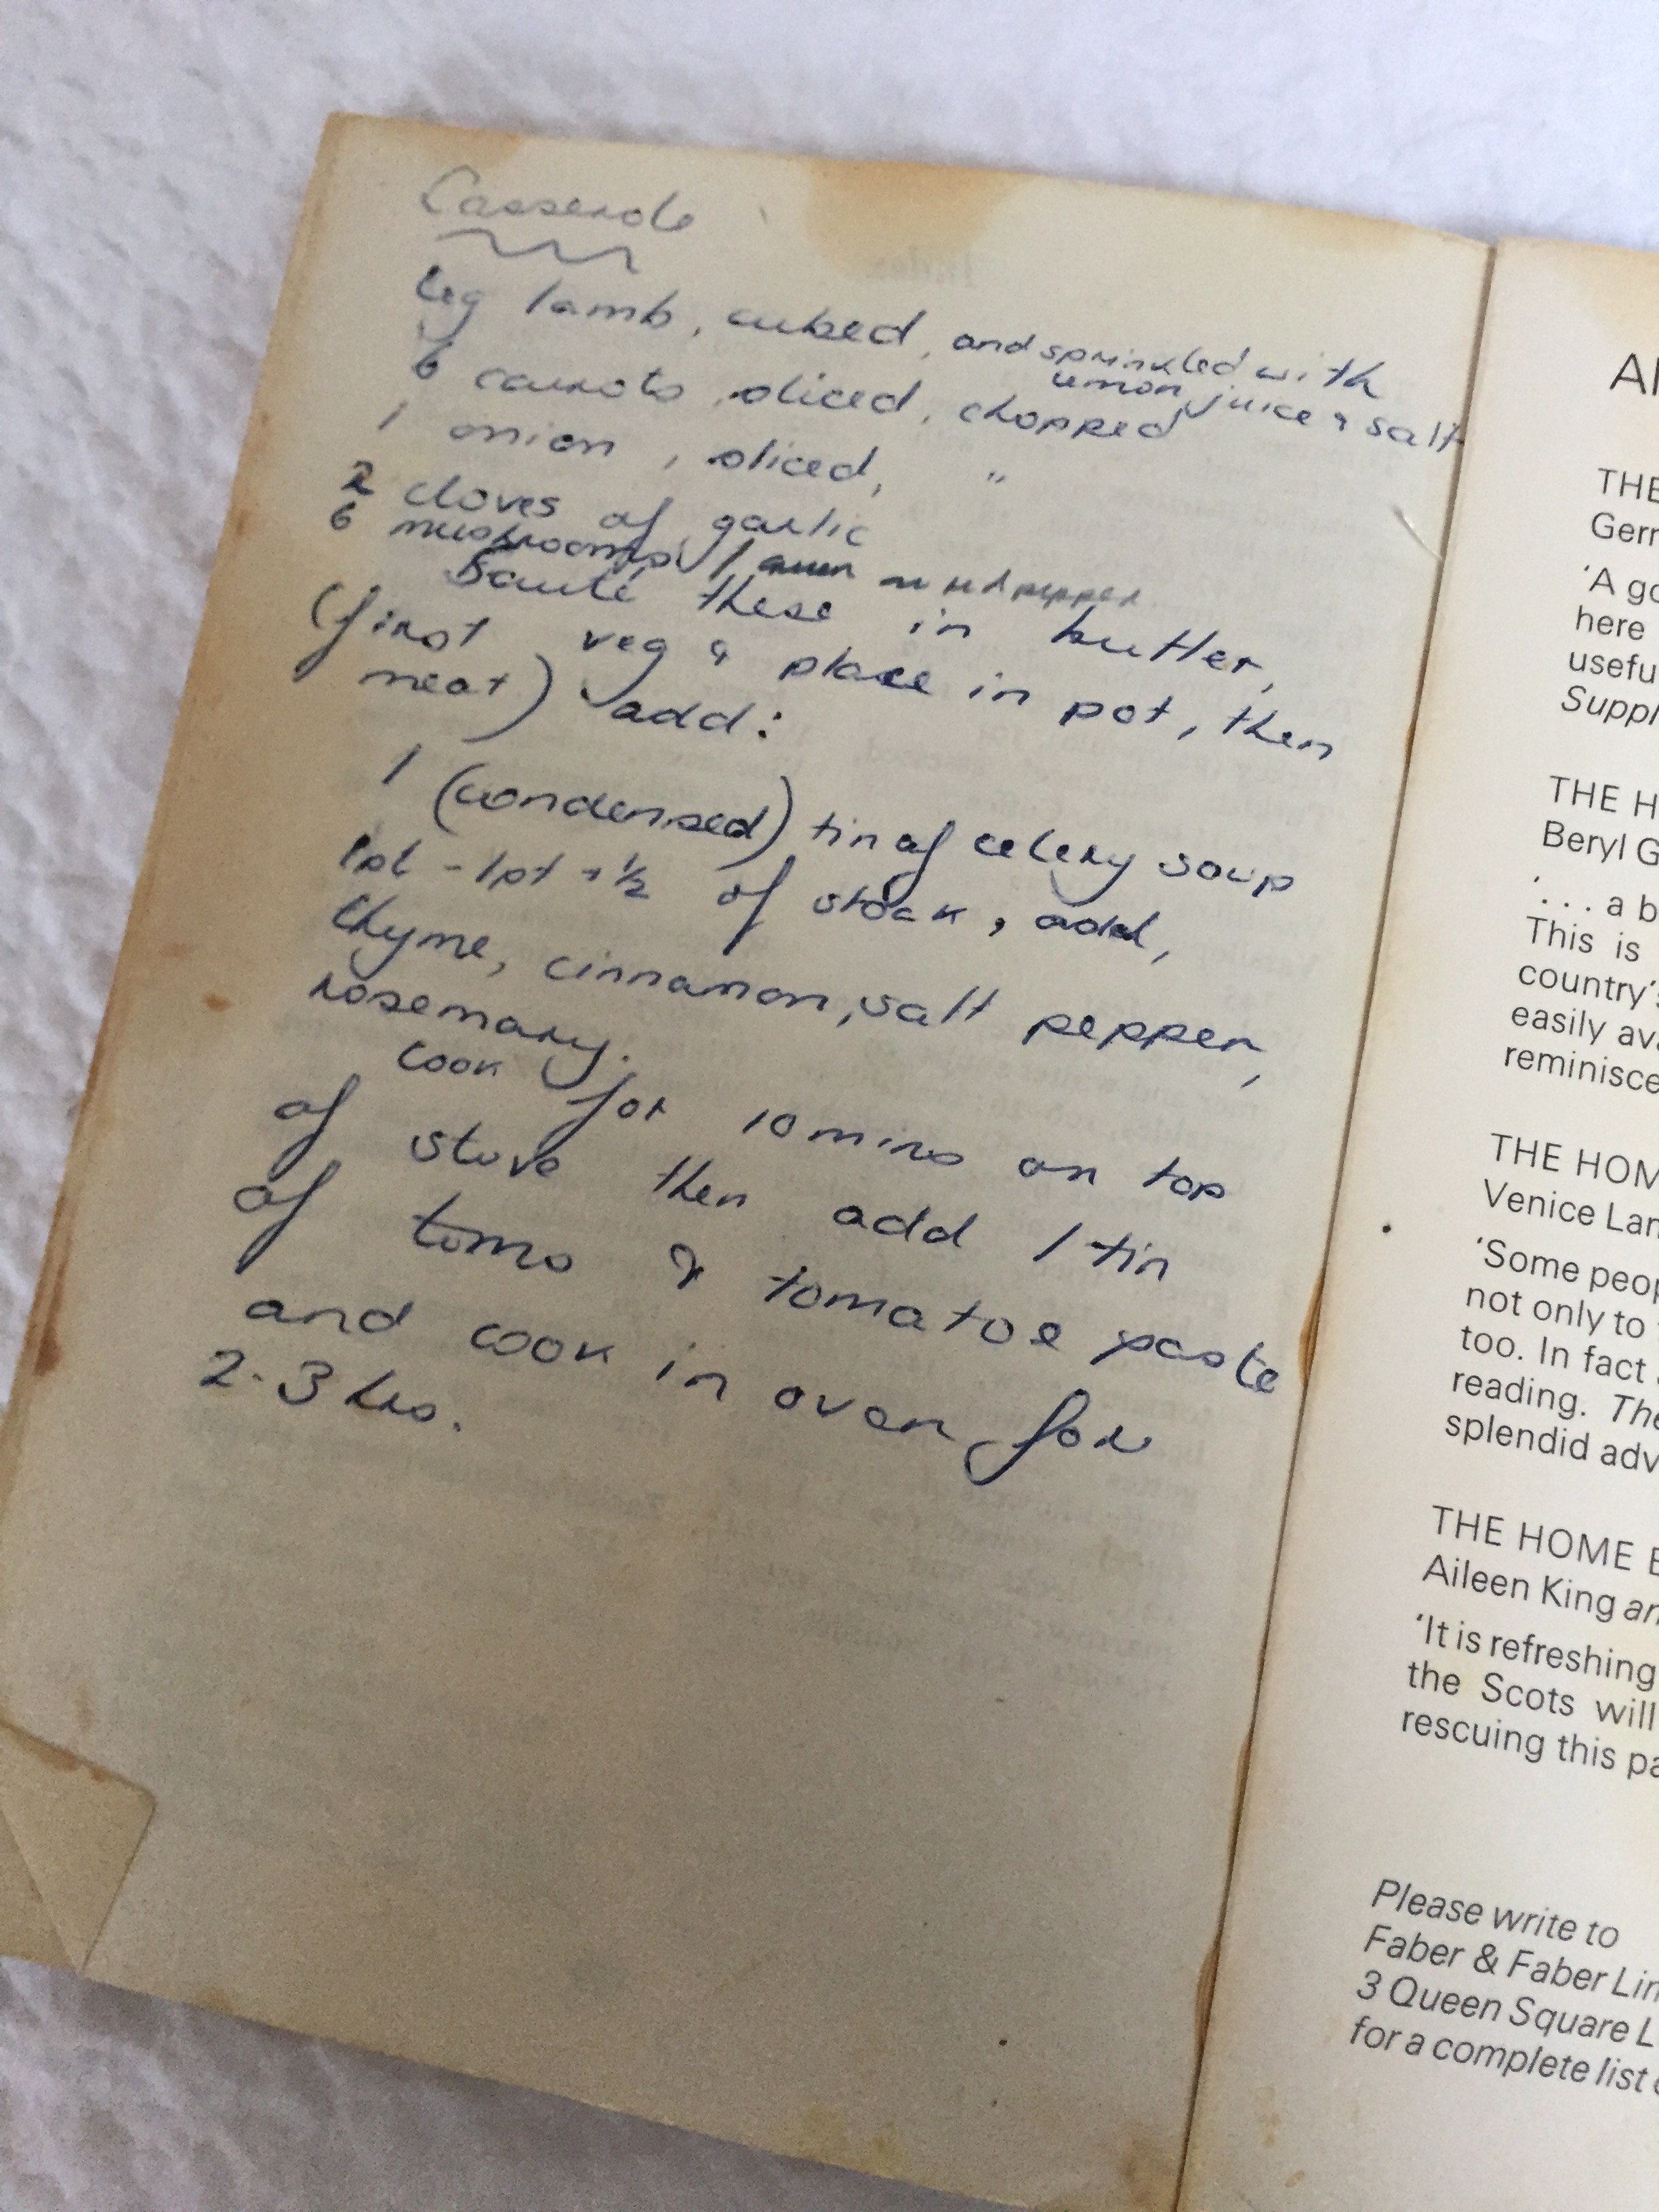 Casserole
leg lamb, cubed, and sprinkled with
lemon juice & salt
6 carrots, sliced, chopped
1 onion, sliced, "
2 cloves of garlic
6 mushrooms, 1 red pepper
Sauté these in butter,
(first veg & place in pot, then
meat) add:
1 (condensed) tin of celery soup
1pt - 1pt + ½ of stock, add,
thyme, cinnamon, salt pepper,
rosemary.
cook for 10 mins on top
of stove then add 1 tin
of toms & tomatoe paste
and cook in oven for
2-3 hrs.
Al
THE
Gern
'A go
here
usefu
Suppl
THE H
Beryl G
'. . . a b
This is
country's
easily ava
reminisce
THE HOM
Venice Lam
'Some peop
not only to
too. In fact
reading. The
splendid adv
THE HOME E
Aileen King an
'It is refreshing
the Scots will
rescuing this pa
Please write to
Faber & Faber Lim
3 Queen Square L
for a complete list o